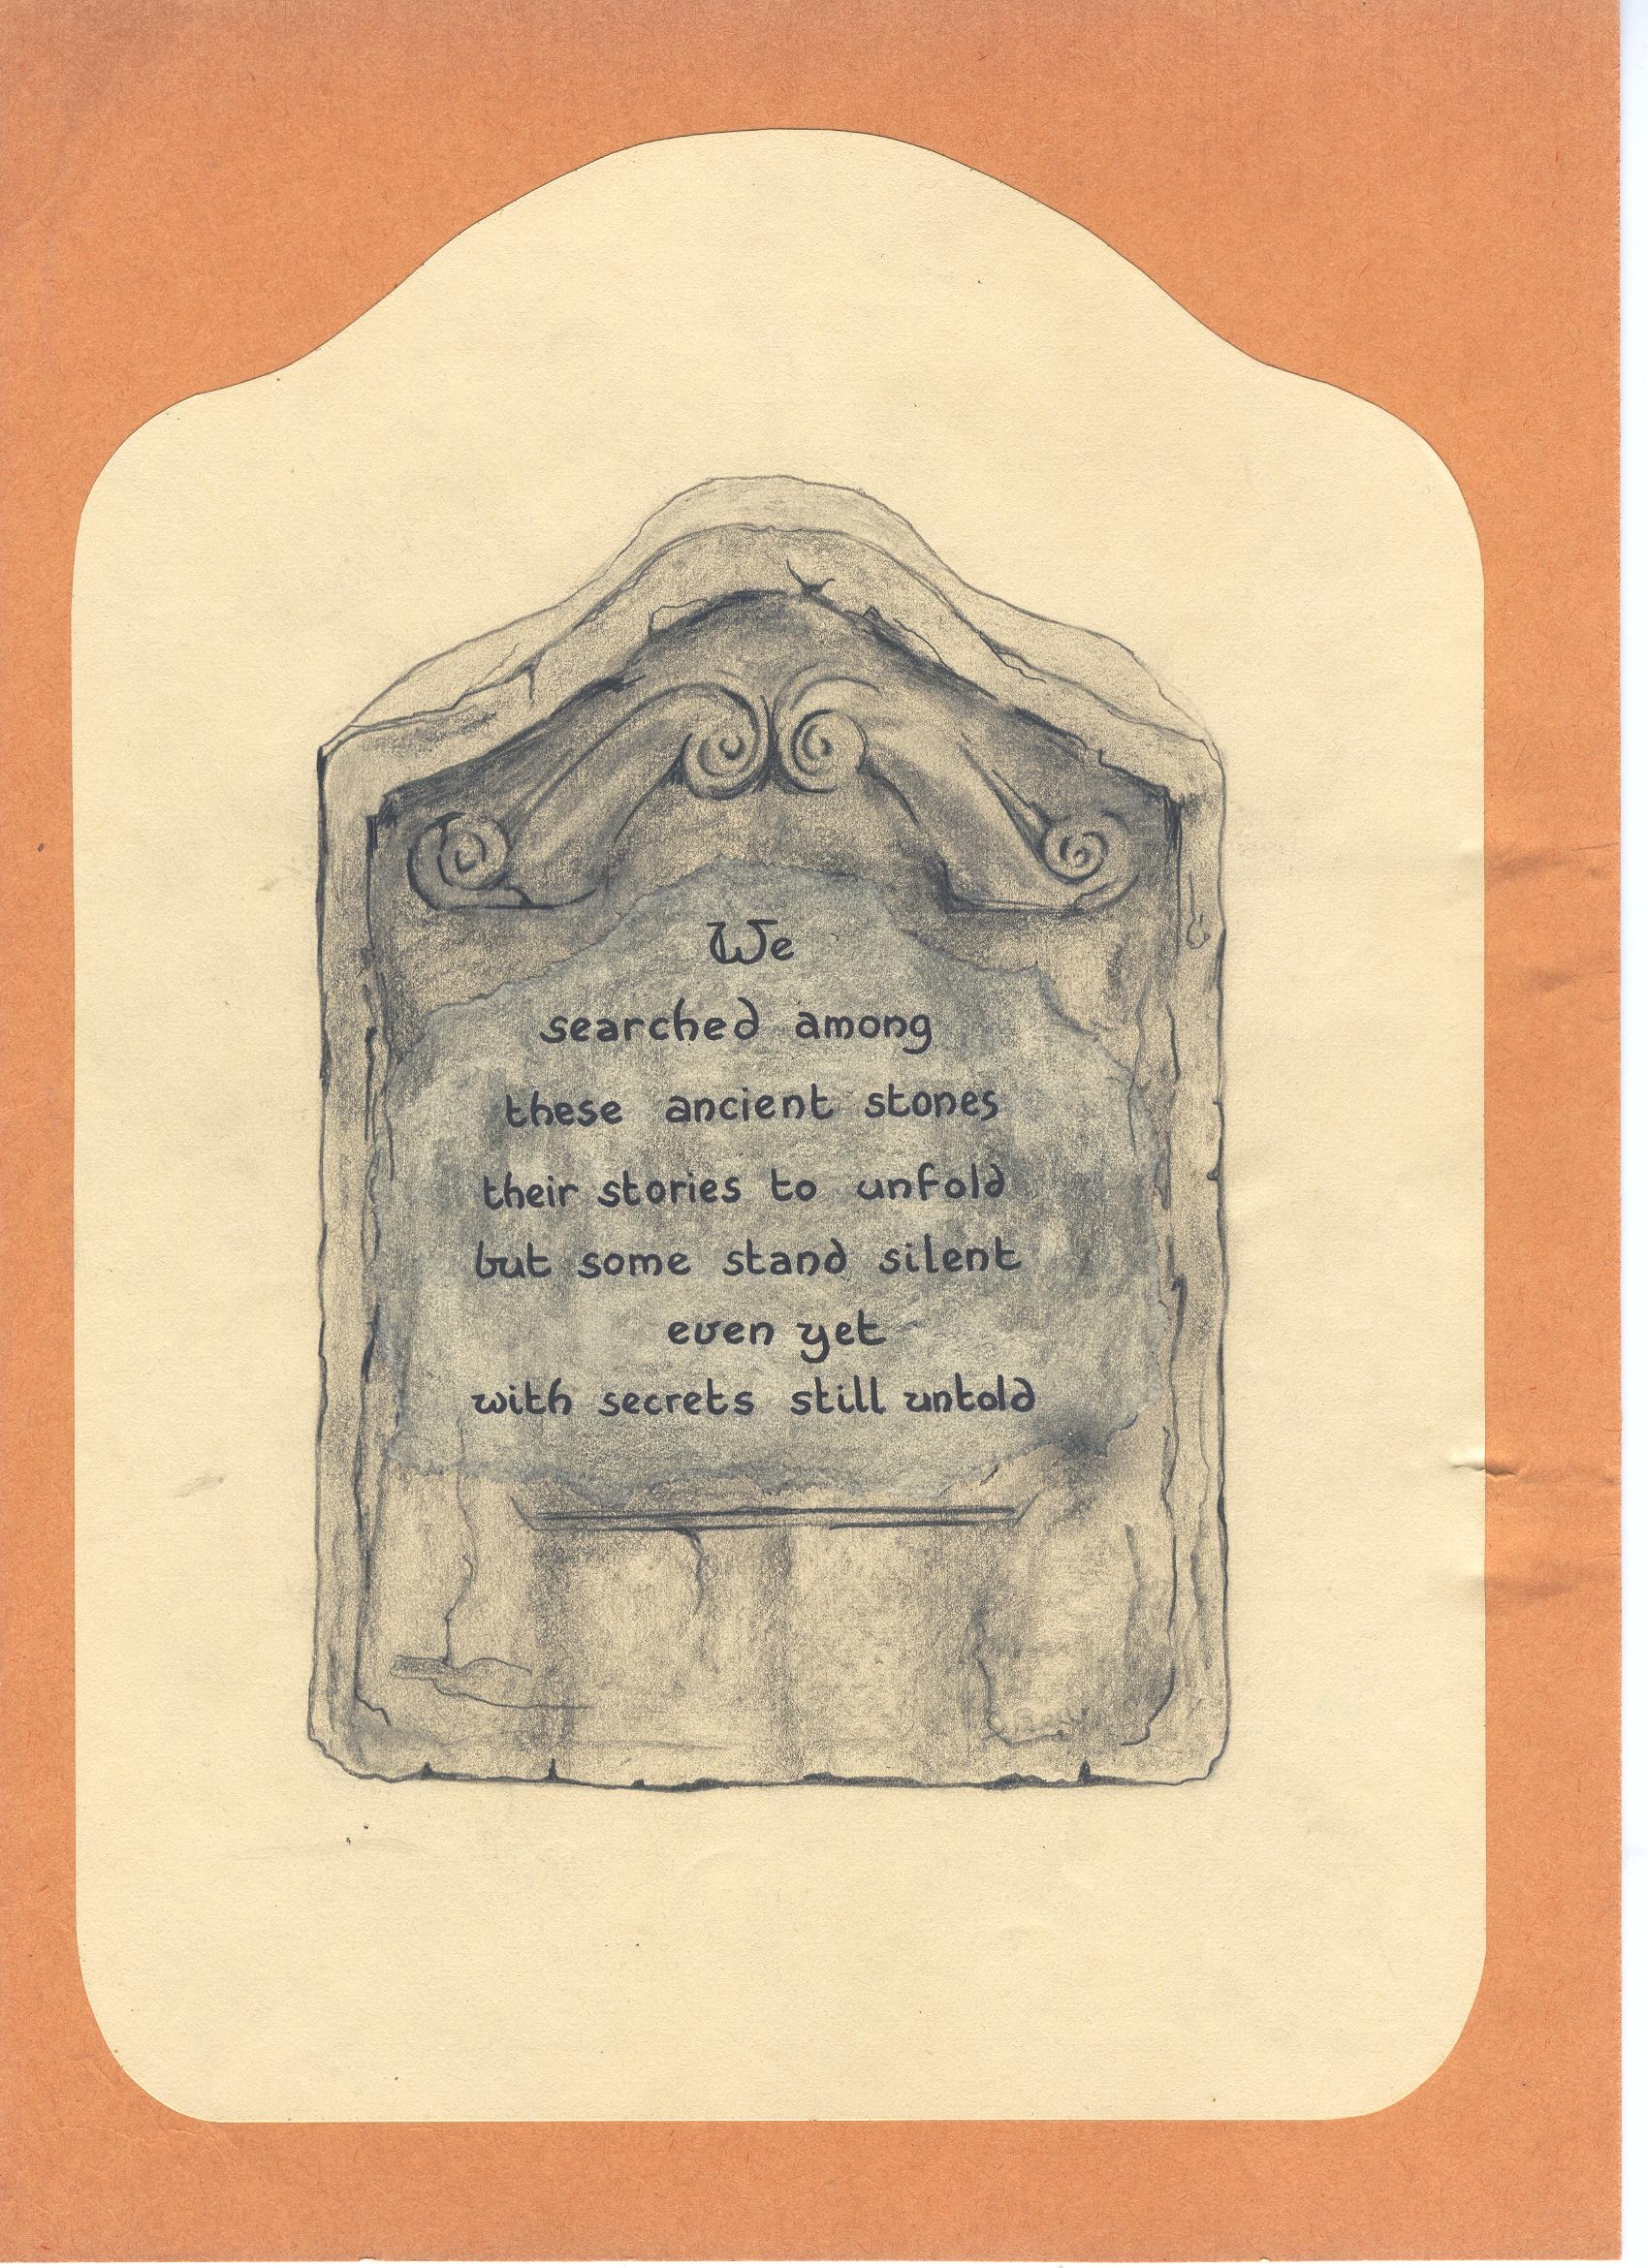 We
searched among
these ancient stones
their stories to unfold
but some stand silent
even yet
with secrets still untold